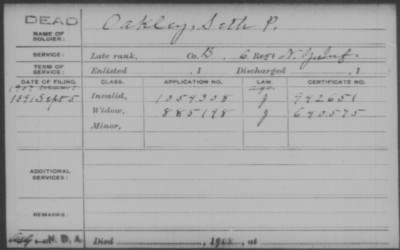 DEAD
NAME OF SOLDIER: Oakley, Seth P.
SERVICE: Late rank, Co. B, 6 Reg't N. Y. Inf.
TERM OF SERVICE: Enlisted , 1 Discharged , 1
DATE OF FILING. CLASS. APPLICATION NO. LAW. CERTIFICATE NO.
1891 Sept 5 Invalid, 1054338 J 942651
Widow, 885198 J 640575
Minor,
ADDITIONAL SERVICES:
REMARKS:
N.D.A. Died , 1908, at